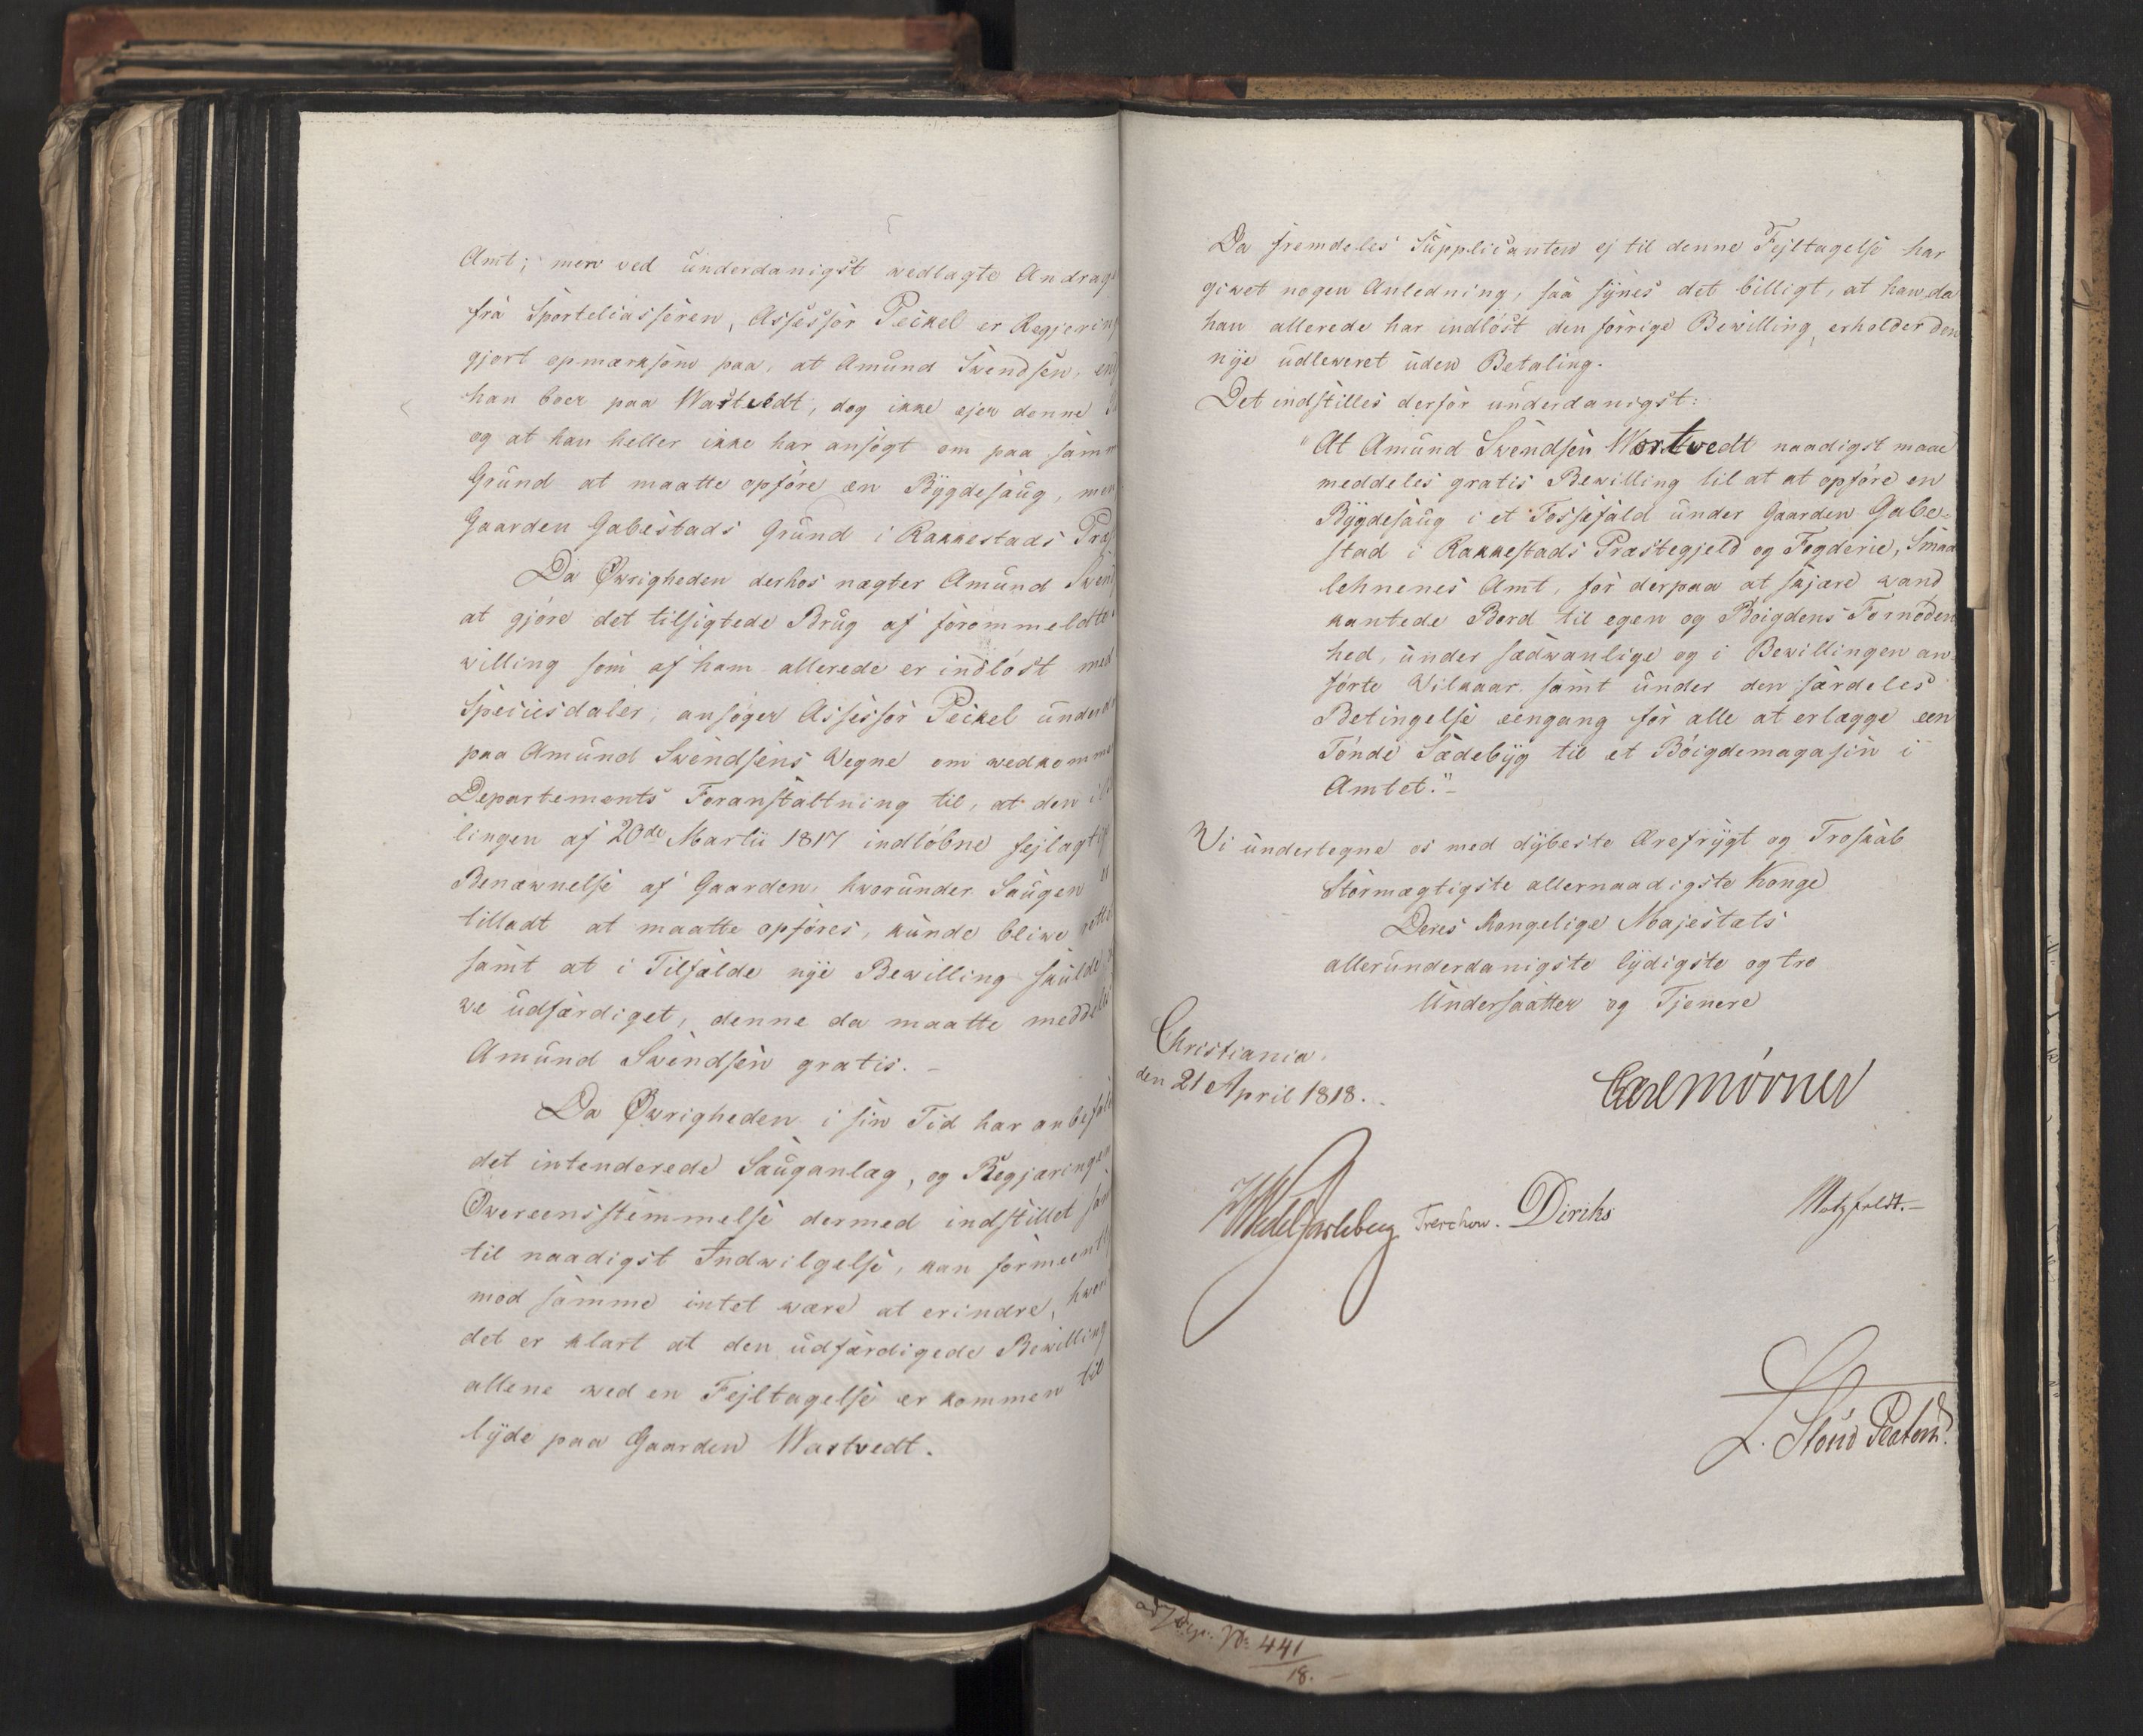 Amt; men ved underdanigst vedlagte Andrag
fra Sportelcasseren, Assessor Peckel er Regjering
gjort opmærksom paa, at Amund Swendsen, end
han boer paa Wastvedt, dog ikke ejer denne
og at han heller ikke har ansøgt om paa samm
Grund at maatte opføre en Bÿgdesaug, men
Gaarden Gabestads Grund i Rakkestads Præ
Da Øwrigheden derhos nægter Amund Swend
at gjøre det tilsigtede Brug af forommeldte
willing som af ham allerede er indløst med
Speciesdaler, ansøger Assessor Peckel underd
paa Amund Swendsens Vegne om wedkomme
Departements Foranstaltning til, at den i
lingen af 20de Martii 1817 indløbne fejlagti
Benæwnelse af Gaarden, hworunder Saugen
tilladt at maatte opføres, kunde bliwe rette
samt at i Tilfælde nÿe Bewilling skulde
we udfærdiget, denne da maatte meddeles
Amund Swendsen gratis. –
Da Øwrigheden i sin Tid har anbefal
det intenderede Sauganlæg, og Regjæringen
Owereensstemmelse dermed indstillet sam
til naadigst Indwilgelse, kan formeentl
mod samme intet være at erindre, hwor
det er klart at den udfærdigede Bewilling
allene wed en Fejltagelse er kommen til
lÿde paa Gaarden Wastvedt.
Da fremdeles Supplicanten ej til denne Fejltagelse har
giwet nogen Anledning, saa sÿnes det billigt, at han, da
han allerede har indløst den forrige Bewilling, erholder den
nÿe udleweret uden Betaling.
Det indstilles derfor underdanigst:
"At Amund Swendsen Wortwedt naadigst maae
meddeles gratis Bewilling til at at opføre en
Bÿgdesaug i et Fossefald under Gaarden Gabe-
stad i Rakkestads Præstegjeld og Fogderie, Smaa
lehnenes Amt, for derpaa at skjære wand
kantede Bord til egen og Bøigdens Fornøden
hed, under sædwanlige og i Bewillingen an-
førte Vilkaar samt under den særdeles
Betingelse eengang for alle at erlægge een
Tønde Sædebÿg til et Bøigdemagasin i
Amtet." –
Vi undertegne os med dÿbeste Ærefrÿgt og Troskab
Stormægtigste allernaadigste Konge
Deres Kongelige Majestæts
allerunderdanigste lÿdigste og tro
Undersaatter og Tjenere
Christiania,
den 21 April 1818.
Carl Mörner
HWedelJarlsberg Treschow. Diriks Motzfeldt. –
L. Stoud Platou.
No 441
18. –